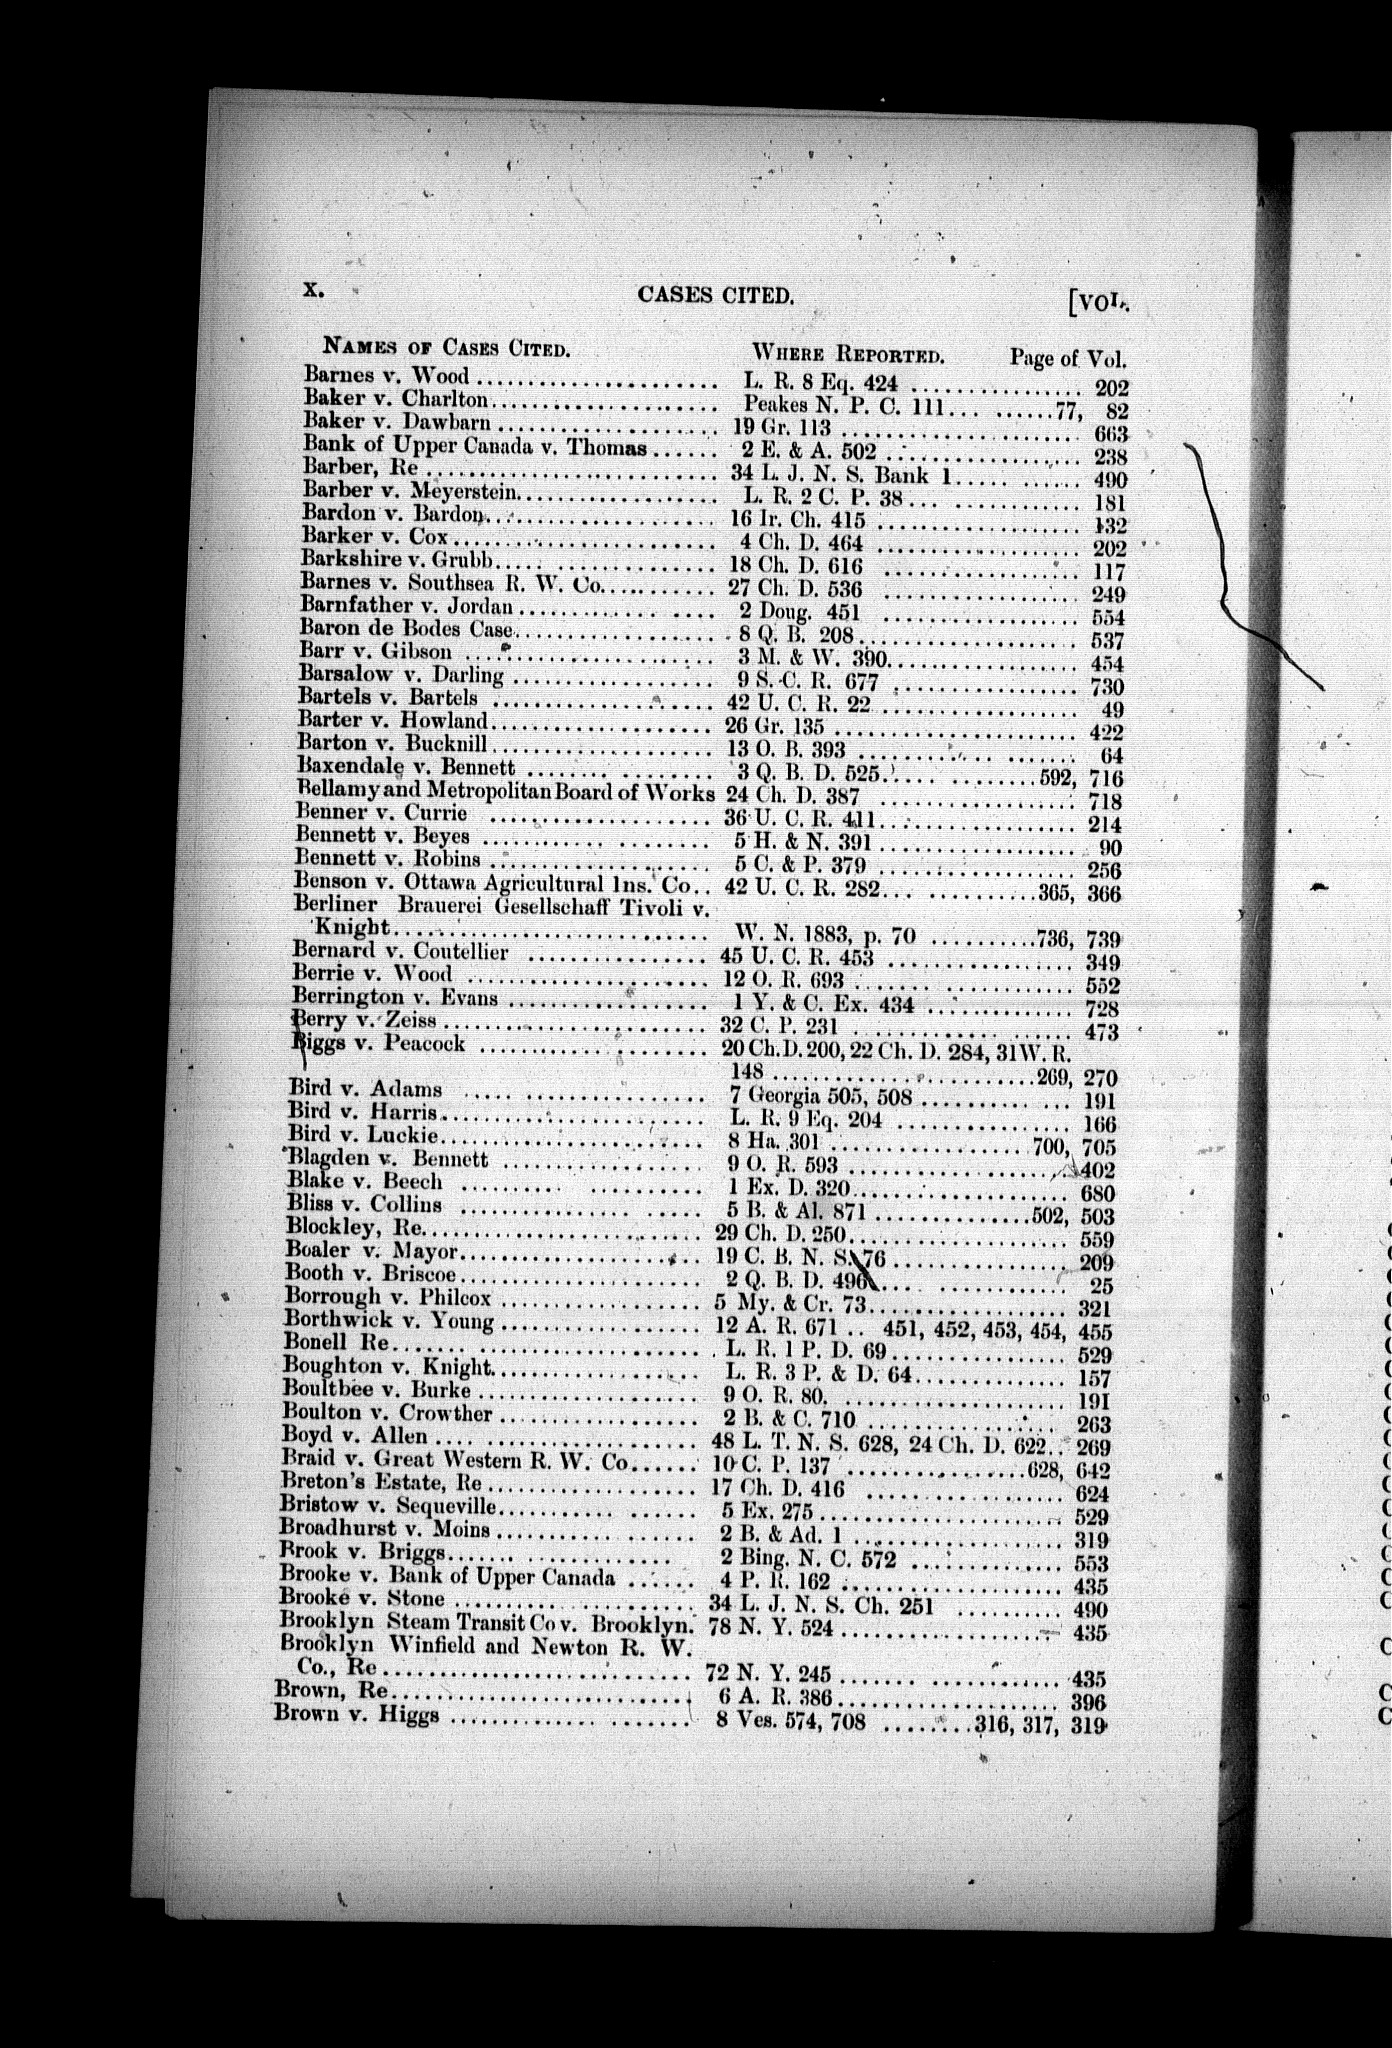 X. CASES CITED. [VOL.
NAMES OF CASES CITED. WHERE REPORTED. Page of Vol.
Barnes v. Wood ..................... L. R. 8 Eq. 424 ............... 202
Baker v. Charlton.................... Peakes N. P. C. 111... ......77, 82
Baker v. Dawbarn ................... 19 Gr. 113 ..................... 663
Bank of Upper Canada v. Thomas...... 2 E. & A. 502 ................. 238
Barber, Re ......................... 34 L. J. N. S. Bank 1..... ...... 490
Barber v. Meyerstein.................. L. R. 2 C. P. 38... ............ 181
Bardon v. Bardon.................... 16 Ir. Ch. 415 .................. 132
Barker v. Cox....................... 4 Ch. D. 464 .................. 202
Barkshire v. Grubb..... .............. 18 Ch. D. 616 ................. 117
Barnes v. Southsea R. W. Co........... 27 Ch. D. 536 ................. 249
Barnfather v. Jordan ............ .... 2 Doug. 451 ................. 554
Baron de Bodes Case.................. 8 Q. B. 208.................... 537
Barr v. Gibson ...................... 3 M. & W. 390................. 454
Barsalow v. Darling .................. 9 S. C. R. 677 ................ 730
Bartels v. Bartels .................... 42 U. C. R. 22 .................. 49
Barter v. Howland.................... 26 Gr. 135 ..................... 422
Barton v. Bucknill.................... 13 O. B. 393 ............ ...... 64
Baxendale v. Bennett ........ ......... 3 Q. B. D. 525..... ........592, 716
Bellamy and Metropolitan Board of Works 24 Ch. D. 387 ................. 718
Benner v. Currie .................... 36 U. C. R. 411.................. 214
Bennett v. Beyes ............ ......... 5 H. & N. 391 .................. 90
Bennett v. Robins .................... 5 C. & P. 379 .................. 256
Benson v. Ottawa Agricultural Ins. Co.. 42 U. C. R. 282... ...........365, 366
Berliner Brauerei Gesellschaff Tivoli v.
Knight............................. W. N. 1883, p. 70 ..........736, 739
Bernard v. Coutellier ................ 45 U. C. R. 453 ................ 349
Berrie v. Wood ...................... 12 O. R. 693 ....... ............ 552
Berrington v. Evans .................. 1 Y. & C. Ex. 434 .............. 728
Berry v. Zeiss ........................ 32 C. P. 231 .................... 473
Biggs v. Peacock ..................... 20 Ch. D. 200, 22 Ch. D. 284, 31 W. R.
148 ........................269, 270
Bird v. Adams ..... ................ 7 Georgia 505, 508 .......... ... 191
Bird v. Harris........................ L. R. 9 Eq. 204 ................ 166
Bird v. Luckie........................ 8 Ha. 301 ..................700, 705
Blagden v. Bennett .................. 9 O. R. 593 .................... 402
Blake v. Beech .......... ........... 1 Ex. D. 320.................... 680
Bliss v. Collins ............... ..... 5 B. & Al. 871 ..............502, 503
Blockley, Re......................... 29 Ch. D. 250................... 559
Boaler v. Mayor...................... 19 C. B. N. S. 76 ................ 209
Booth v. Briscoe...................... 2 Q. B. D. 496.... ............ 25
Borrough v. Philcox .................. 5 My. & Cr. 73.................. 321
Borthwick v. Young .................. 12 A. R. 671 .. 451, 452, 453, 454, 455
Bonell Re....... .................... L. R. 1 P. D. 69................ 529
Boughton v. Knight................... L. R. 3 P. & D. 64.............. 157
Boultbee v. Burke .................... 9 O. R. 80. .................... 191
Boulton v. Crowther .................. 2 B. & C. 710 .................. 263
Boyd v. Allen .... ................... 48 L. T. N. S. 628, 24 Ch. D. 622.. 269
Braid v. Great Western R. W. Co...... 10 C. P. 137 ................628, 642
Breton's Estate, Re ................... 17 Ch. D. 416 .................. 624
Bristow v. Sequeville............ ...... 5 Ex. 275 ...................... 529
Broadhurst v. Moins ............ ...... 2 B. & Ad. 1 ................... 319
Brook v. Briggs....... ............. 2 Bing. N. C. 572 .............. 553
Brooke v. Bank of Upper Canada ...... 4 P. R. 162 .................... 435
Brooke v. Stone ..................... 34 L. J. N. S. Ch. 251 .......... 490
Brooklyn Steam Transit Co v. Brooklyn. 78 N. Y. 524 .................... 435
Brooklyn Winfield and Newton R. W.
Co., Re ............................ 72 N. Y. 245 ....... ............ 435
Brown, Re........................... 6 A. R. 386..................... 396
Brown v. Higgs ............. ....... 8 Ves. 574, 708 ........316, 317, 319